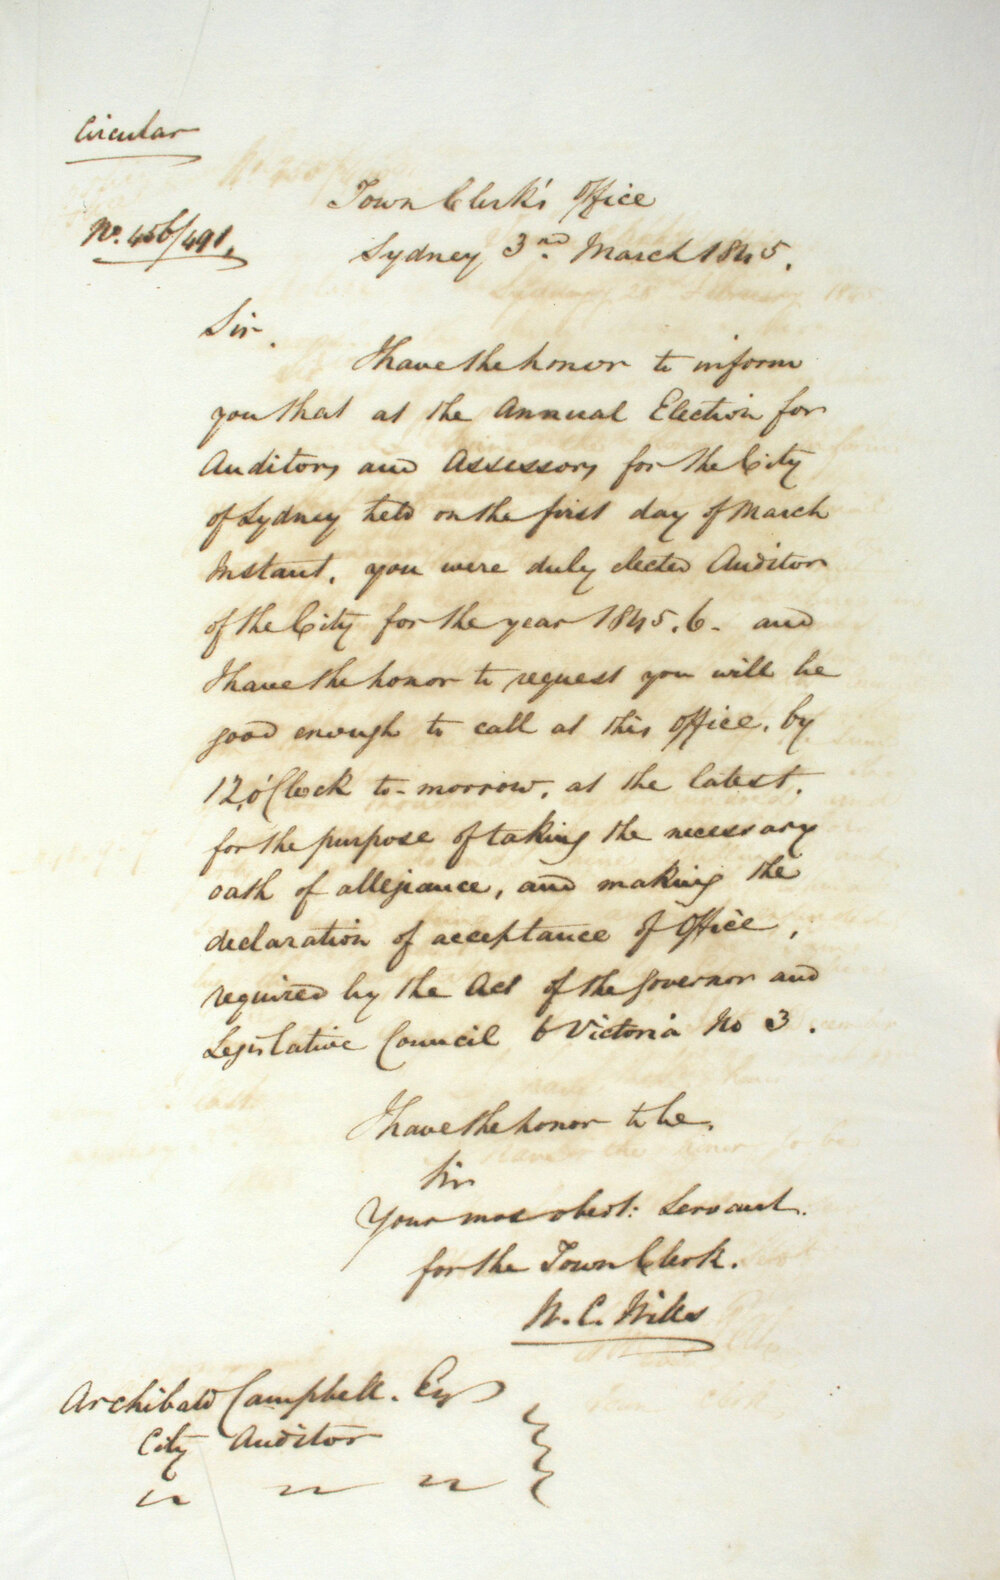 Circular
Town Clerk's Office
No. 456/491.
Sydney 3nd. March 1845.
Sir.
I have the honor to inform
you that at the Annual Election for
Auditors and Assessors for the City
of Sydney held on the first day of March
Instant, you were duly elected Auditor
of the City for the year 1845.6- and
I have the honor to request you will be
good enough to call at this office, by
12, o'Clock to-morrow, at the latest,
for the purpose of taking the necessary
oath of allegiance, and making the
declaration of acceptance of Office,
required by the Act of the Governor and
Legislative Council 6 Victoria No 3.
I have the honor to be,
Sir
Your mos obedt: Servant.
for the Town Clerk.
W. C. Wills
Archibald Campbell. Esq
City Auditor
" " "